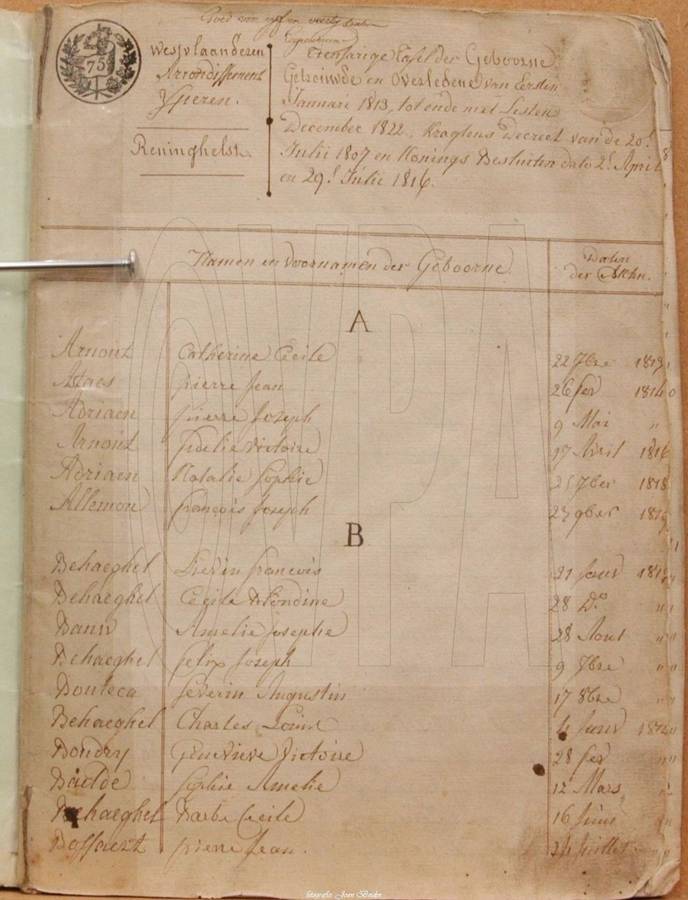 Goed voor vyf en veertig
75
Westvlaanderen
Arrondissement
Yperen.
Reninghelst
Tienjarige Tafel der Geboorne
Getrouwde en Overledene van Eersten
Januarii 1813, tot ende met Lesten
December 1822, Kragtens Decreet van de 20.
Julii 1807 en Konings Besluiten dato 2. April
en 29. Julie 1816.
Namen en Voornamen der Geboorne
Daten der Akten.
A
Arnout Catherine Cecile 22 7bre
Maes Pierre Jean 26 fev 1814
Adriaen Pierre Joseph 9 Mai "
Arnout Fidelie Victoire 17 Avril 1816
Adriaen Natalie Sophie 25 7ber 1818
Allemon François Joseph 27 9ber
B
Behaeghel Lievin francois 21 Janv
Behaeghel Cecile Blondine 28 Do "
Amelie Josephe 28 Aout "
Behaeghel felix Joseph 9 7bre "
Bouteca Severin Augustin 17 8bre "
Behaeghel Charles Louis 4 Janv 1814
Boudry Genevieve Victoire 28 fev "
Baelde Sophie Amelie 12 Mars "
Behaeghel Barbe Cecile 16 Juin "
Bossaert Pierre Jean. 24 Juillet "
GWPA